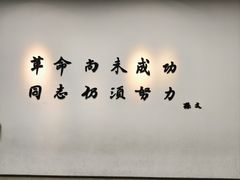 革命尚未成功
同志仍须努力
孙文